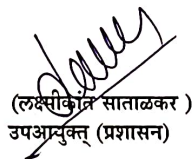 (लक्ष्मीकांत साताळकर )
उपआयुक्त (प्रशासन)